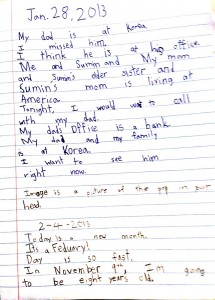 Jan. 28, 2013
My dad is at Korea
I missed him
I think he is at his office
Me and Sumin and My mom
and Sumin's elder sister and
Sumin's mom is living at
America
Tonight, I would to call
with my dad.
My dads Office is a bank
My dad and my family
is at Korea.
I want to see him
right now.
Image is a picture of the in our
head.
2-4-2013
Today is a new month.
It's a Feduery!
Day is so fast.
In November 9th, I'm going
to be eight years old.